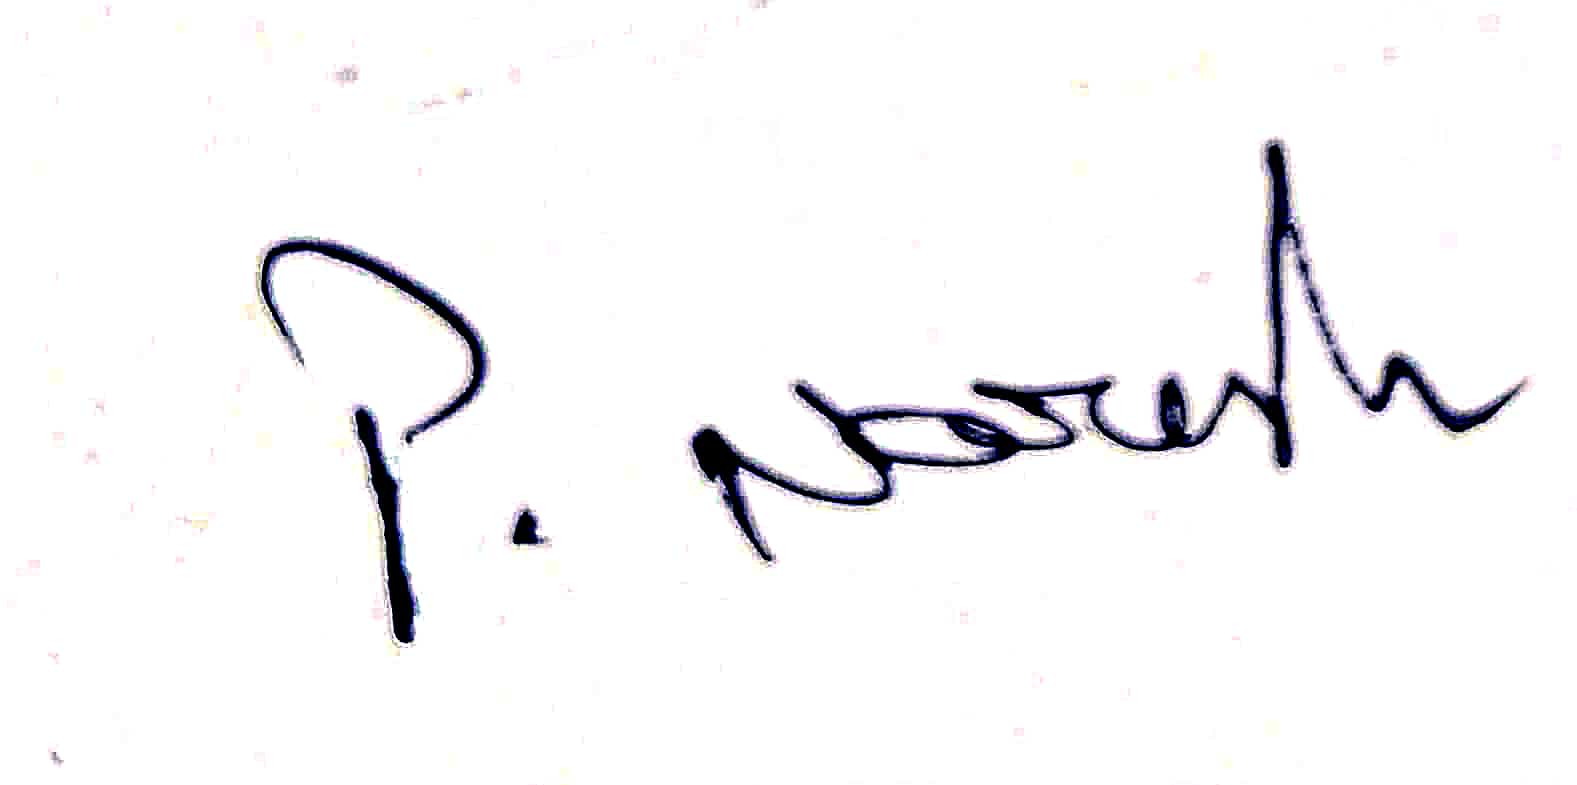 P. Naresh